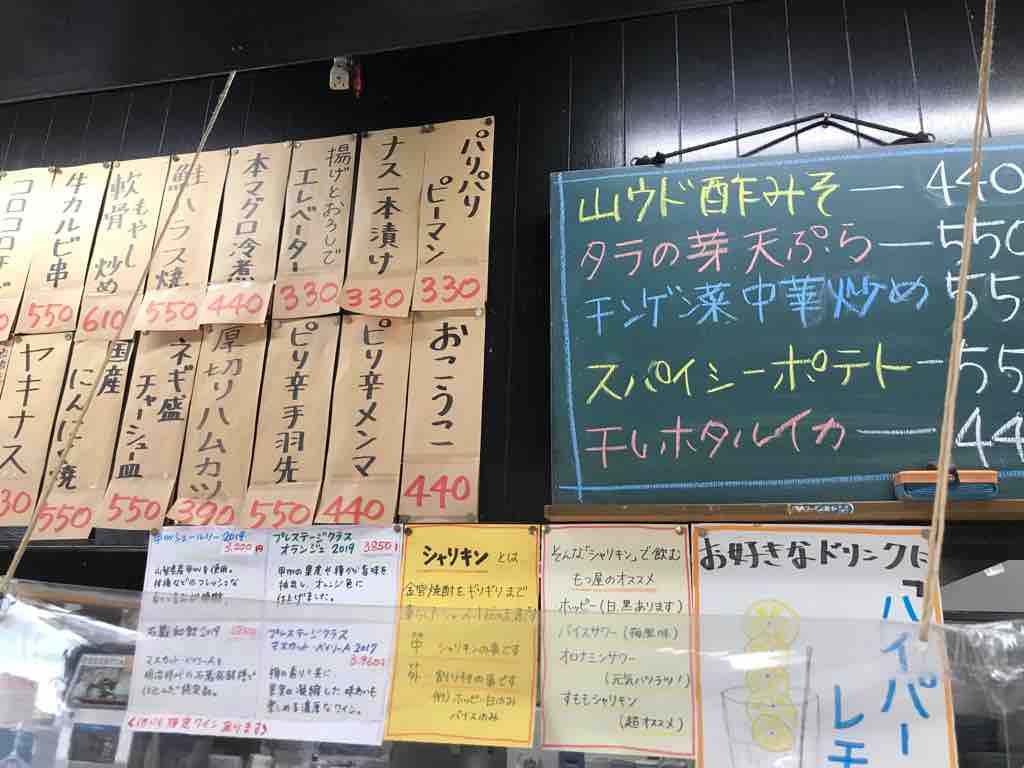 パリパリ
ピーマン
330
ナス一本漬け
330
揚げとおろしで
エレベーター
330
本マグロ冷煮
440
鮭ハラス焼
550
軟骨もやし炒め
610
牛カルビ串
550
コロコロ
おこうこ
440
ピリ辛メンマ
440
ピリ辛手羽先
550
厚切りハムカツ
390
ネギ盛
チャーシュー皿
550
国産
にんにく焼
550
ヤキナス
30
山ウド酢みそ — 440
タラの芽天ぷら — 550
チンゲン菜中華炒め 55
スパイシーポテト — 55
干しホタルイカ — 44
甲州シュールリー 2019
3,200円
プレステージクラス
オランジュ 2019 3850
仕上げました。
石蔵和飲 2019
プレステージクラス
マスカット・ベイリーA 2017
3,960
マスカット・ベイリーAを
楽しめる濃厚なワイン。
シャリキンとは
金宮焼酎をギリギリまで
中 シャリキンの事です
外 割り材の事です
ホッピー・白のみ
バイスのみ
そんな「シャリキン」で飲む
もつ屋のオススメ
ホッピー(白、黒あります)
バイスサワー(梅風味)
オロナミンサワー
(元気ハツラツ!)
すももシャリキン
(超オススメ)
お好きなドリンクに
「ハイパー
レモ